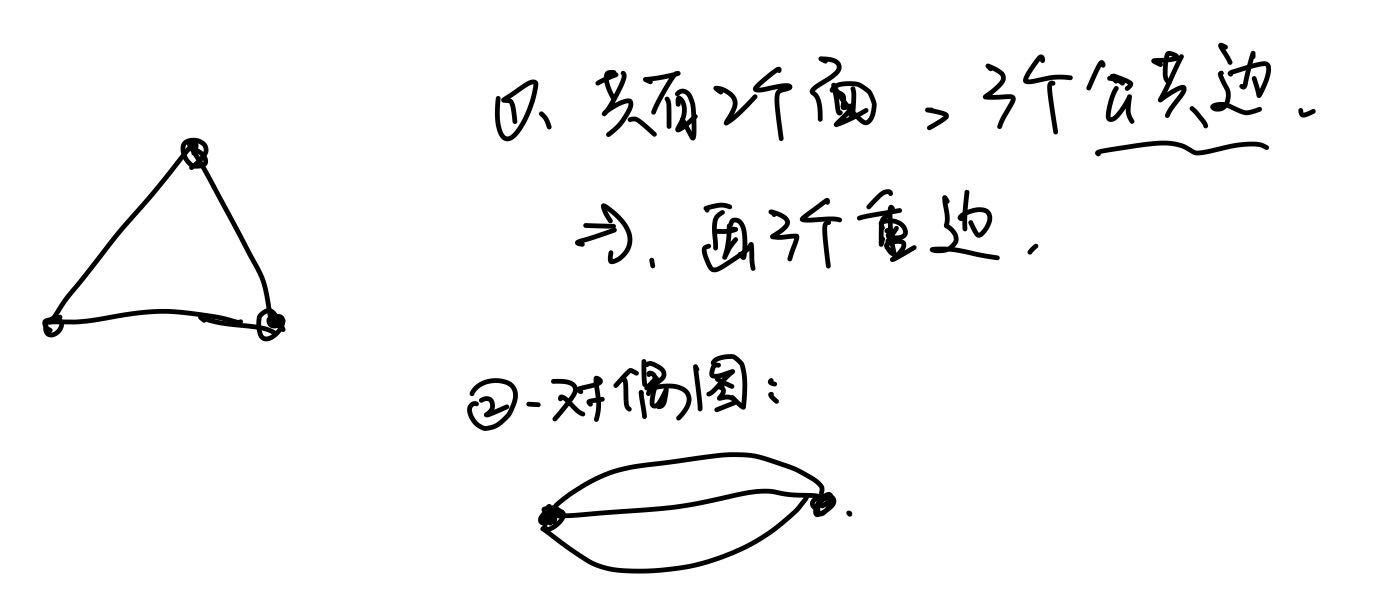 ①、共有2个面，3个公共边．
⇒．画3个重边．
②-对偶图：